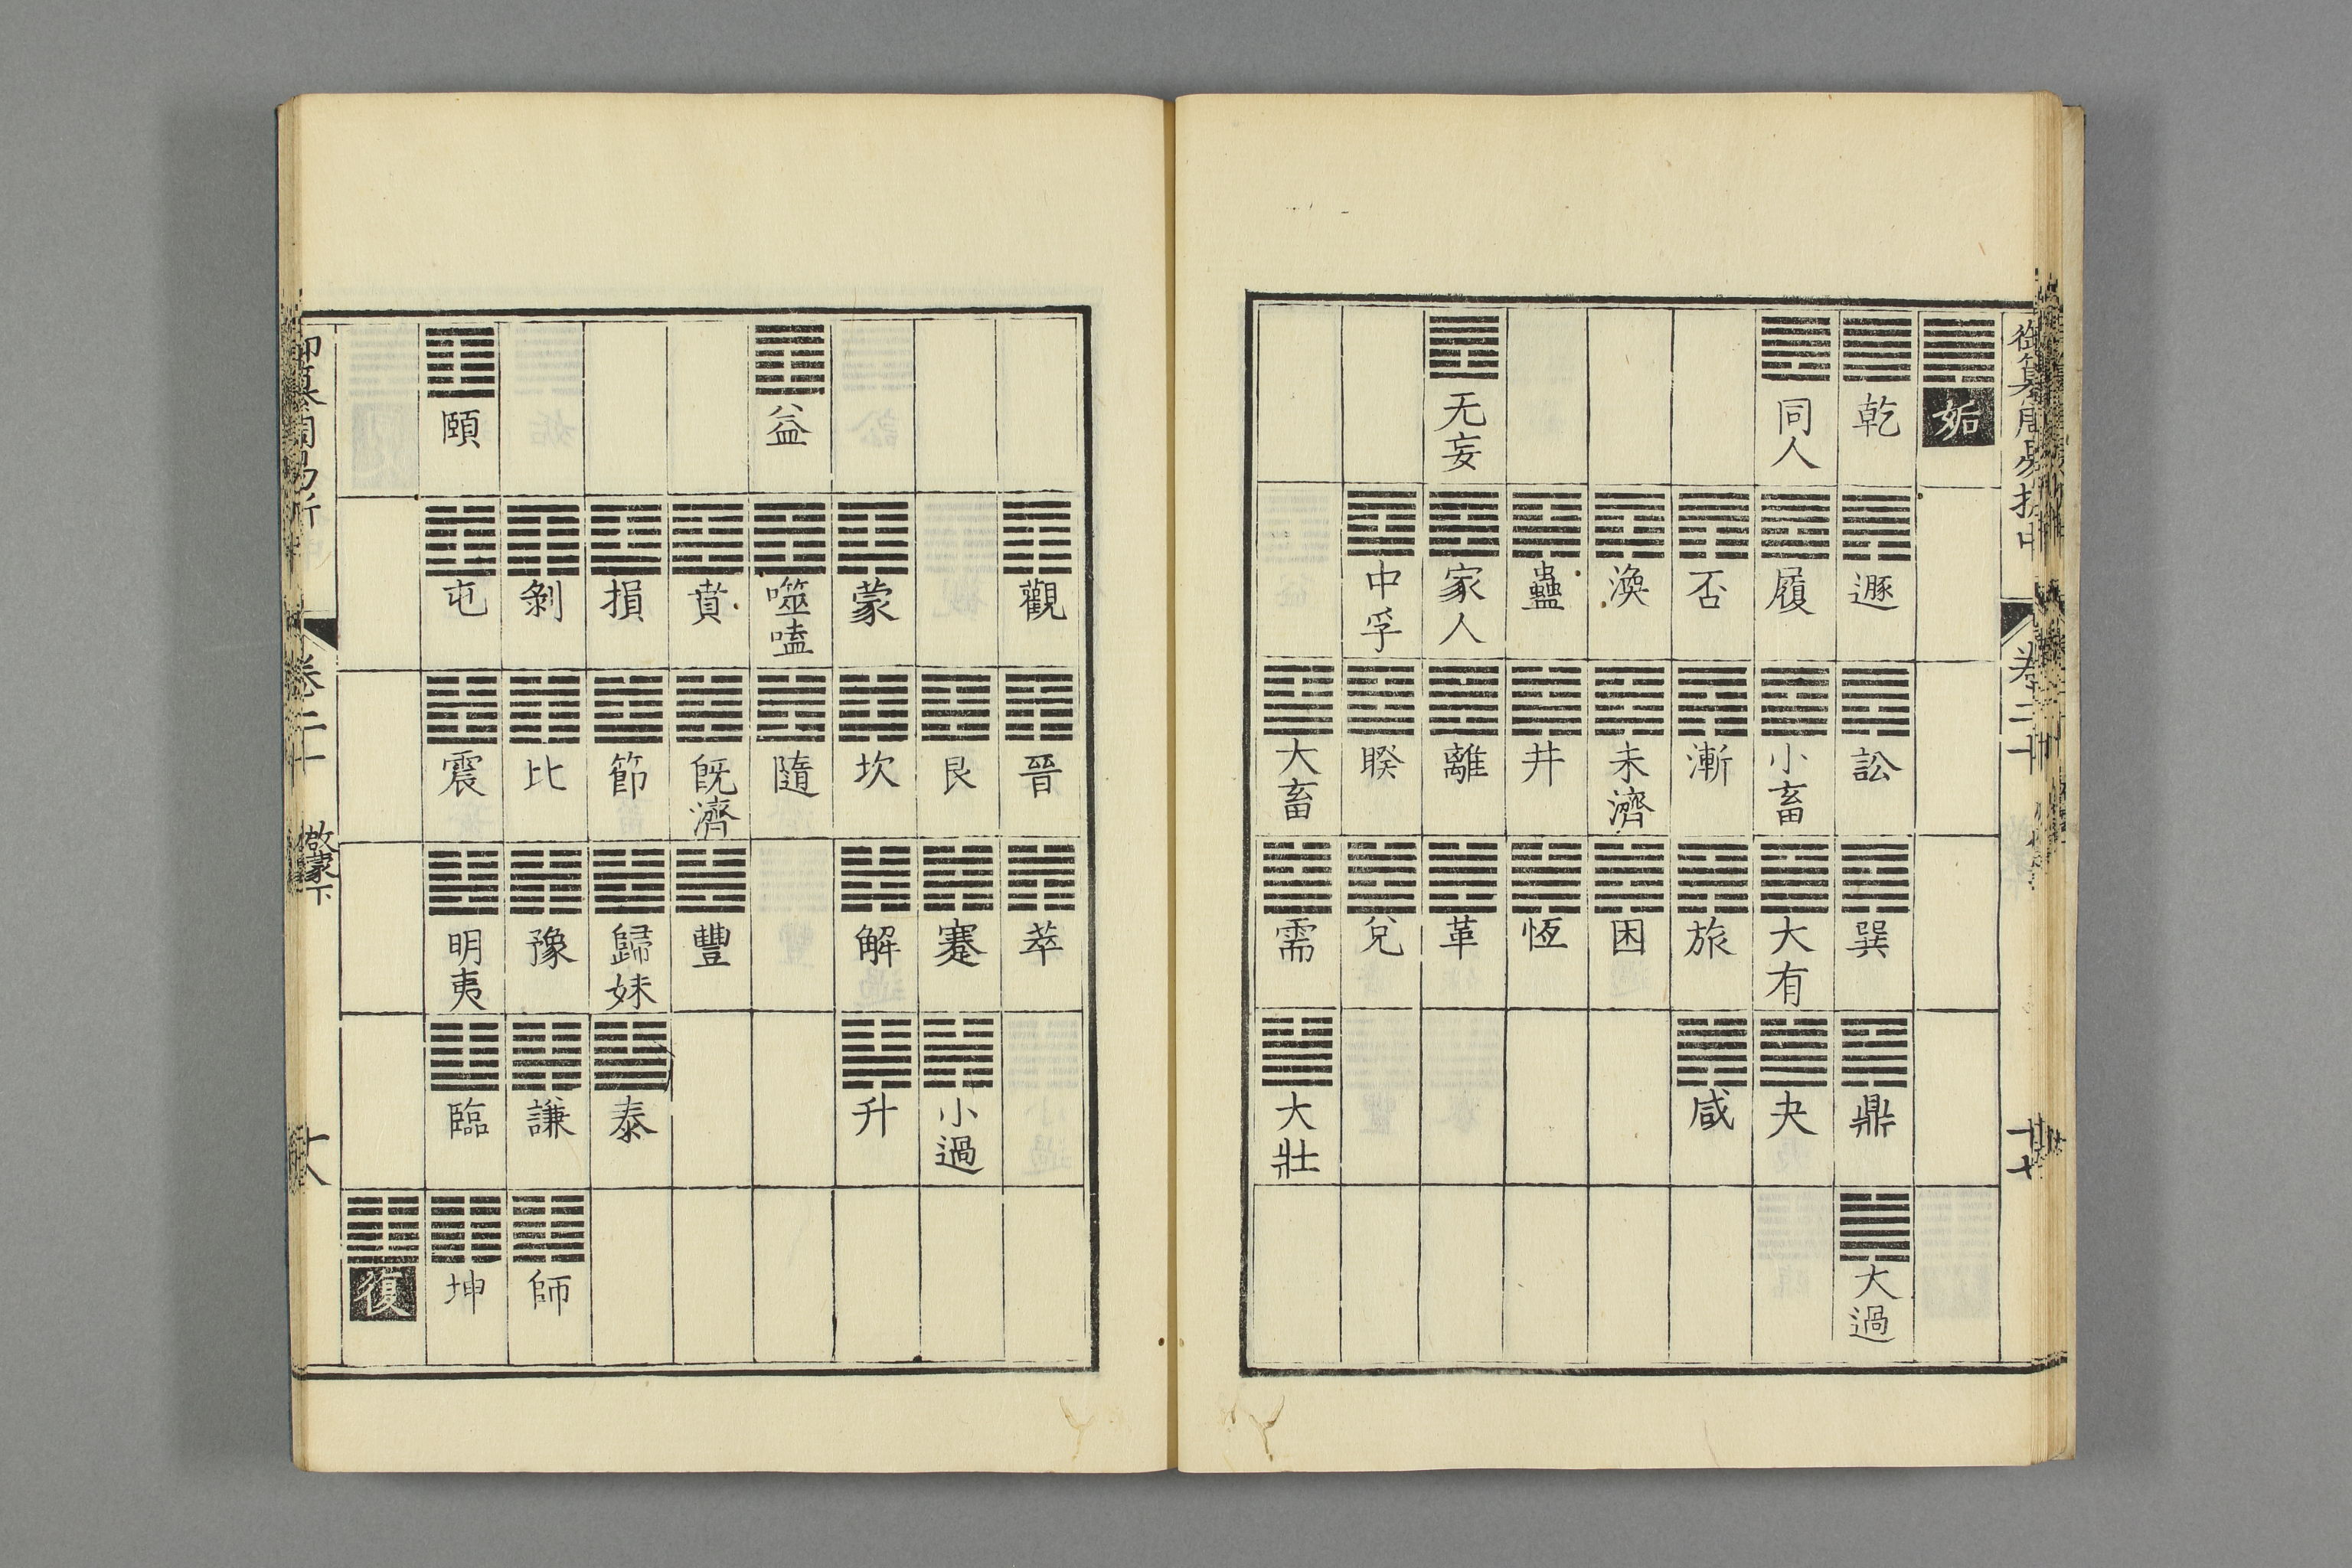 御纂周易折中 卷二十 十七
姤
乾 遯 訟 巽 鼎 大過
同人 履 小畜 大有 夬
否 漸 旅 咸
渙 未濟 困
蠱 井 恆
无妄 家人 離 革
中孚 睽 兌
大畜 需 大壯
觀 晉 萃
艮 蹇 小過
蒙 坎 解 升
益 噬嗑 隨
賁 旣濟 豐
損 節 歸妹 泰
剝 比 豫 謙 師
頤 屯 震 明夷 臨 坤
復
御纂周易折 卷二十 啟蒙下